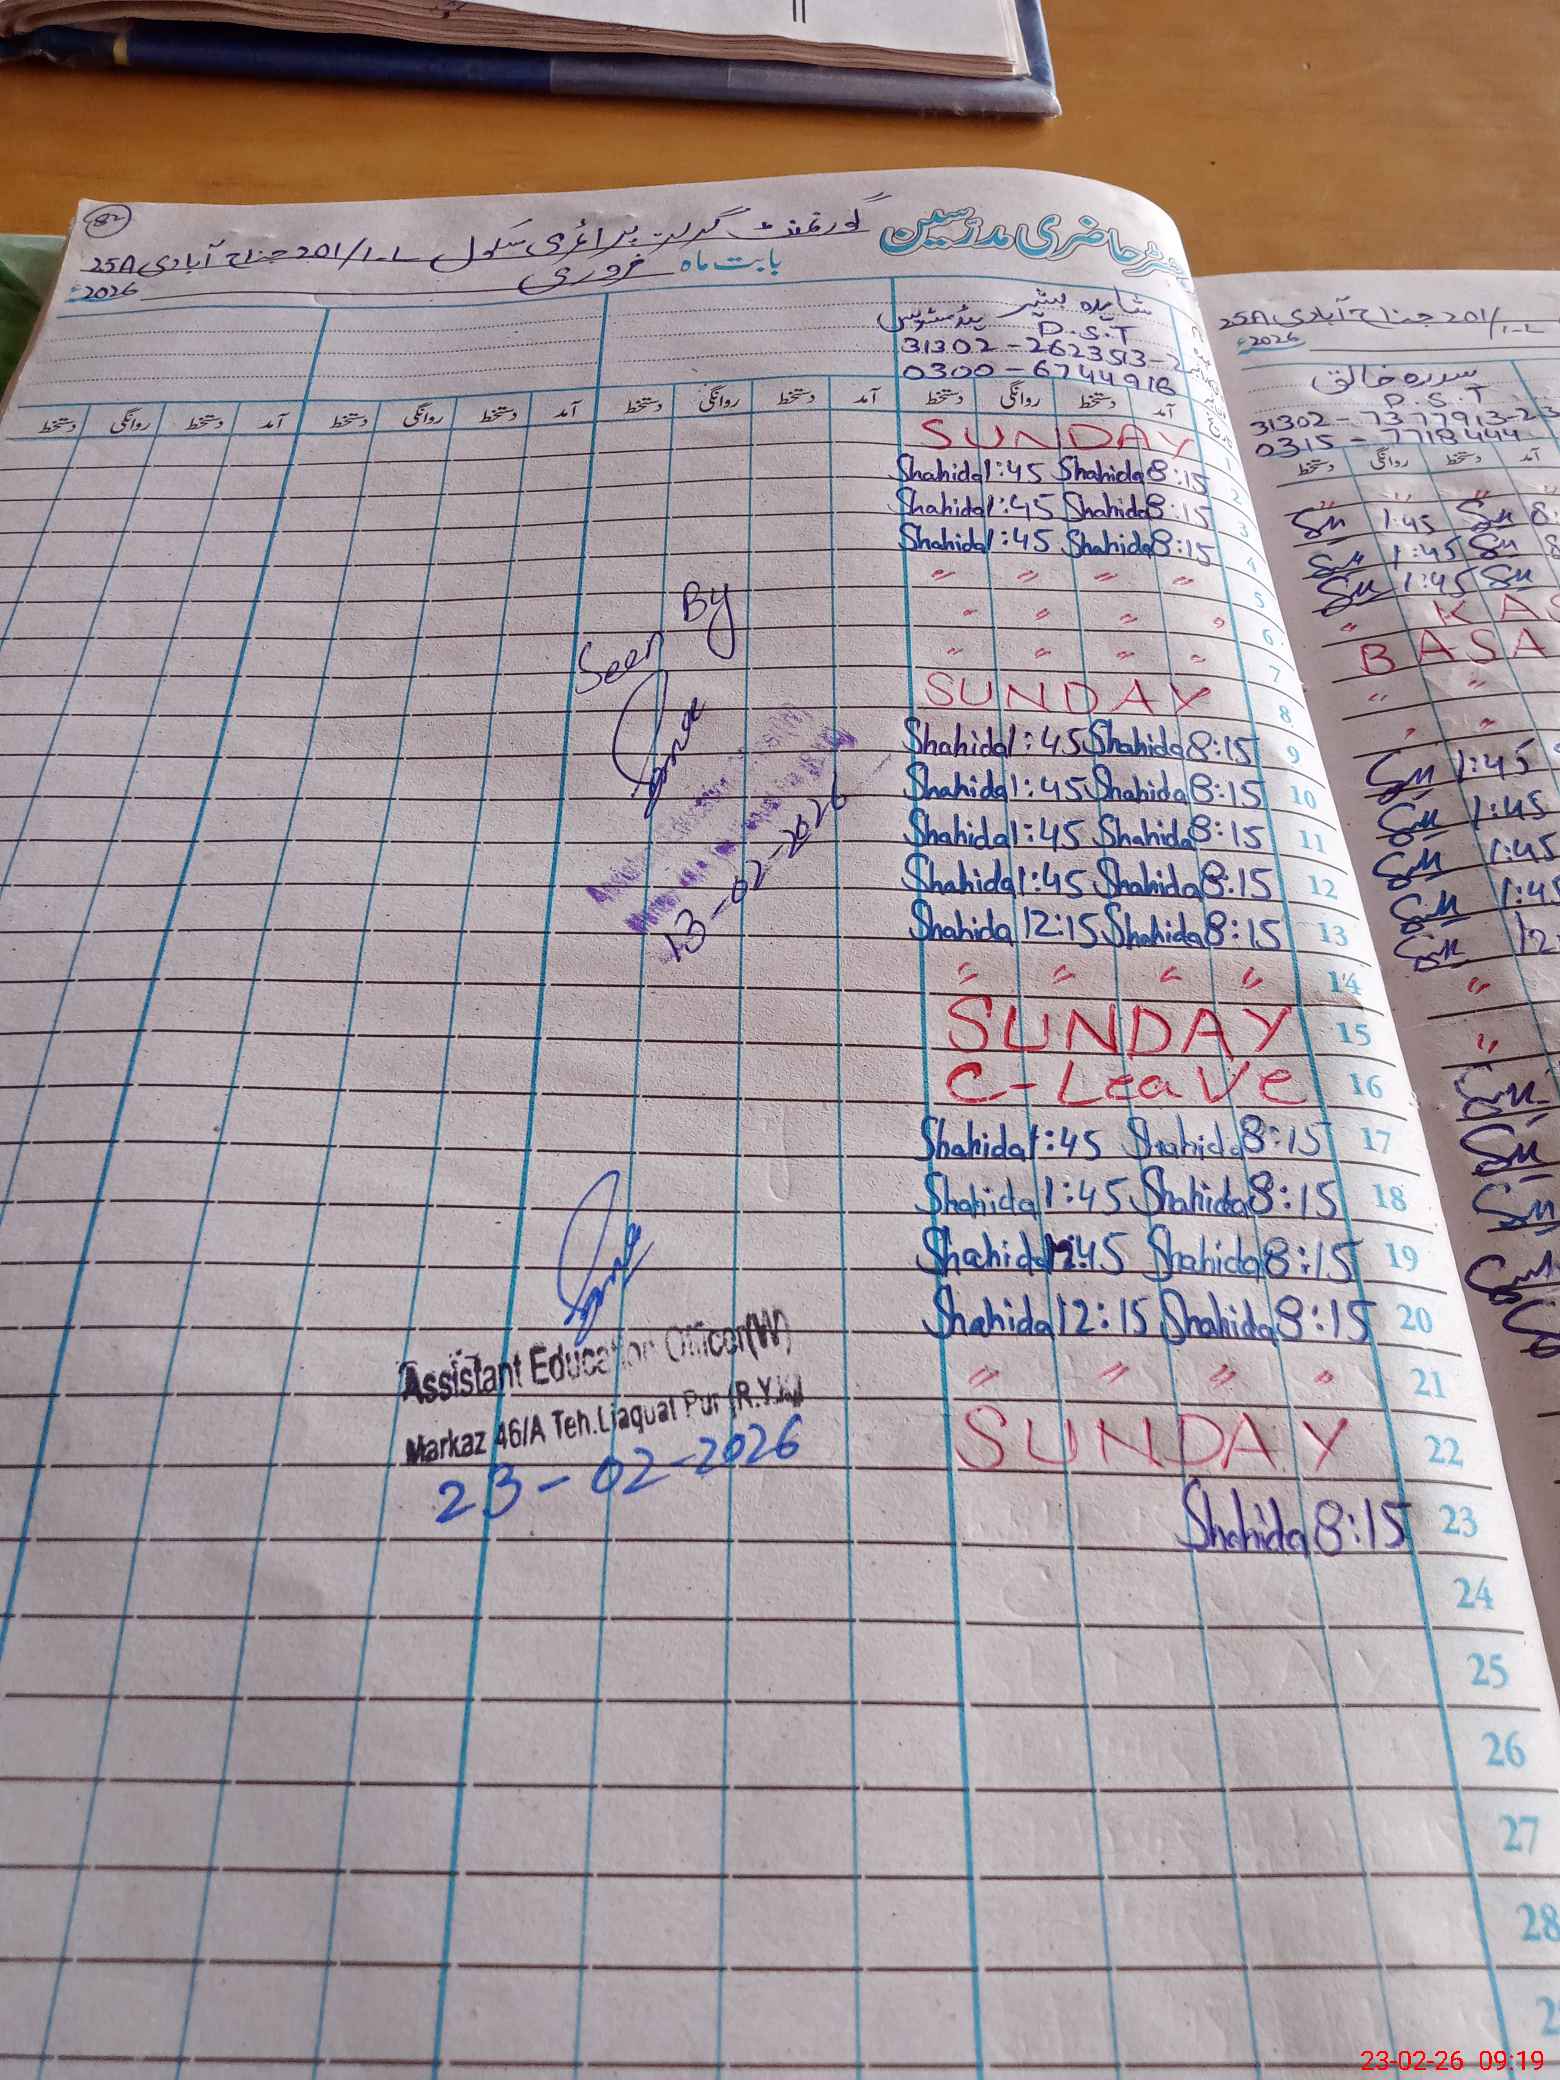 82
رجسٹر حاضری مدرسین گورنمنٹ گرلز پرائمری سکول 201/1-L جناح آبادی 25A
بابت ماہ فروری 2026ء
شاہدہ بشیر
ہیڈمسٹریس P.S.T
31302-2623513-2
0300-6744916
آمد دستخط روانگی دستخط آمد دستخط روانگی دستخط آمد دستخط روانگی دستخط آمد دستخط روانگی دستخط
SUNDAY 1
Shahida 1:45 Shahida 8:15 2
Shahida 1:45 Shahida 8:15 3
Shahida 1:45 Shahida 8:15 4
" " " " 5
" " " " 6
" " " " 7
SUNDAY 8
Shahida 1:45 Shahida 8:15 9
Shahida 1:45 Shahida 8:15 10
Shahida 1:45 Shahida 8:15 11
Shahida 1:45 Shahida 8:15 12
Shahida 12:15 Shahida 8:15 13
" " " " 14
SUNDAY 15
C-Leave 16
Shahida 1:45 Shahida 8:15 17
Shahida 1:45 Shahida 8:15 18
Shahida 1:45 Shahida 8:15 19
Shahida 12:15 Shahida 8:15 20
" " " " 21
SUNDAY 22
Shahida 8:15 23
24
25
26
27
28
Seen By
13-02-2026
Assistant Education Officer(W)
Markaz 46/A Teh.Liaquat Pur (R.Y.K)
23-02-2026
201/1-L جناح آبادی 25A
2026ء
سدرہ خالق
P.S.T
31302-7377913-2
0315-7718444
آمد دستخط روانگی دستخط
1:45 8:
1:45 8
1:45
KAS
BASA
1:45
1:45
1:45
1:45
12:
23-02-26 09:19